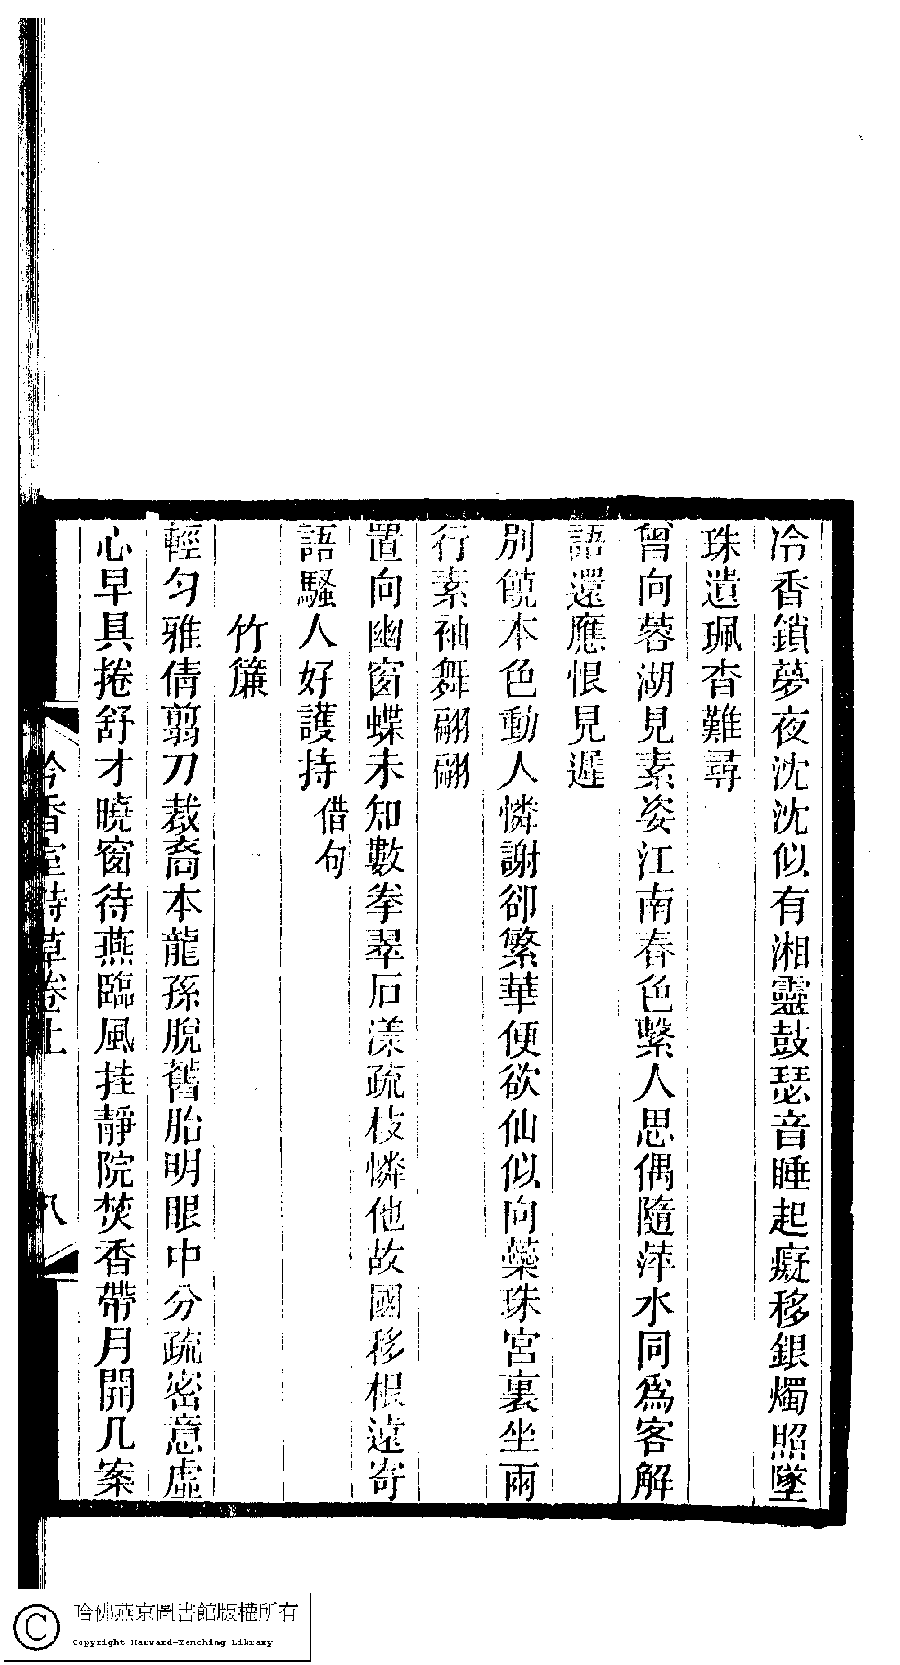 冷香鎖夢夜沈沈似有湘靈鼓瑟音睡起癡移銀燭照墜
珠遺珮杳難尋
曾向蓉湖見素姿江南春色繫人思偶隨萍水同爲客解
語還應恨見遲
別饒本色動人憐謝卻繁華便欲仙似向蘂珠宮裏坐雨
行素袖舞翩翩
置向幽窗蝶未知數拳翠石漾疏枝憐他故國移根遠寄
語騷人好護持借句
竹簾
輕勻雅倩翦刀裁裔本龍孫脫舊胎明眼中分疏密意虛
心早具捲舒才曉窗待燕臨風挂靜院焚香帶月開几案
吟香室詩草卷上
八
哈佛燕京圖書館版權所有
Copyright Harvard-Yenching Library